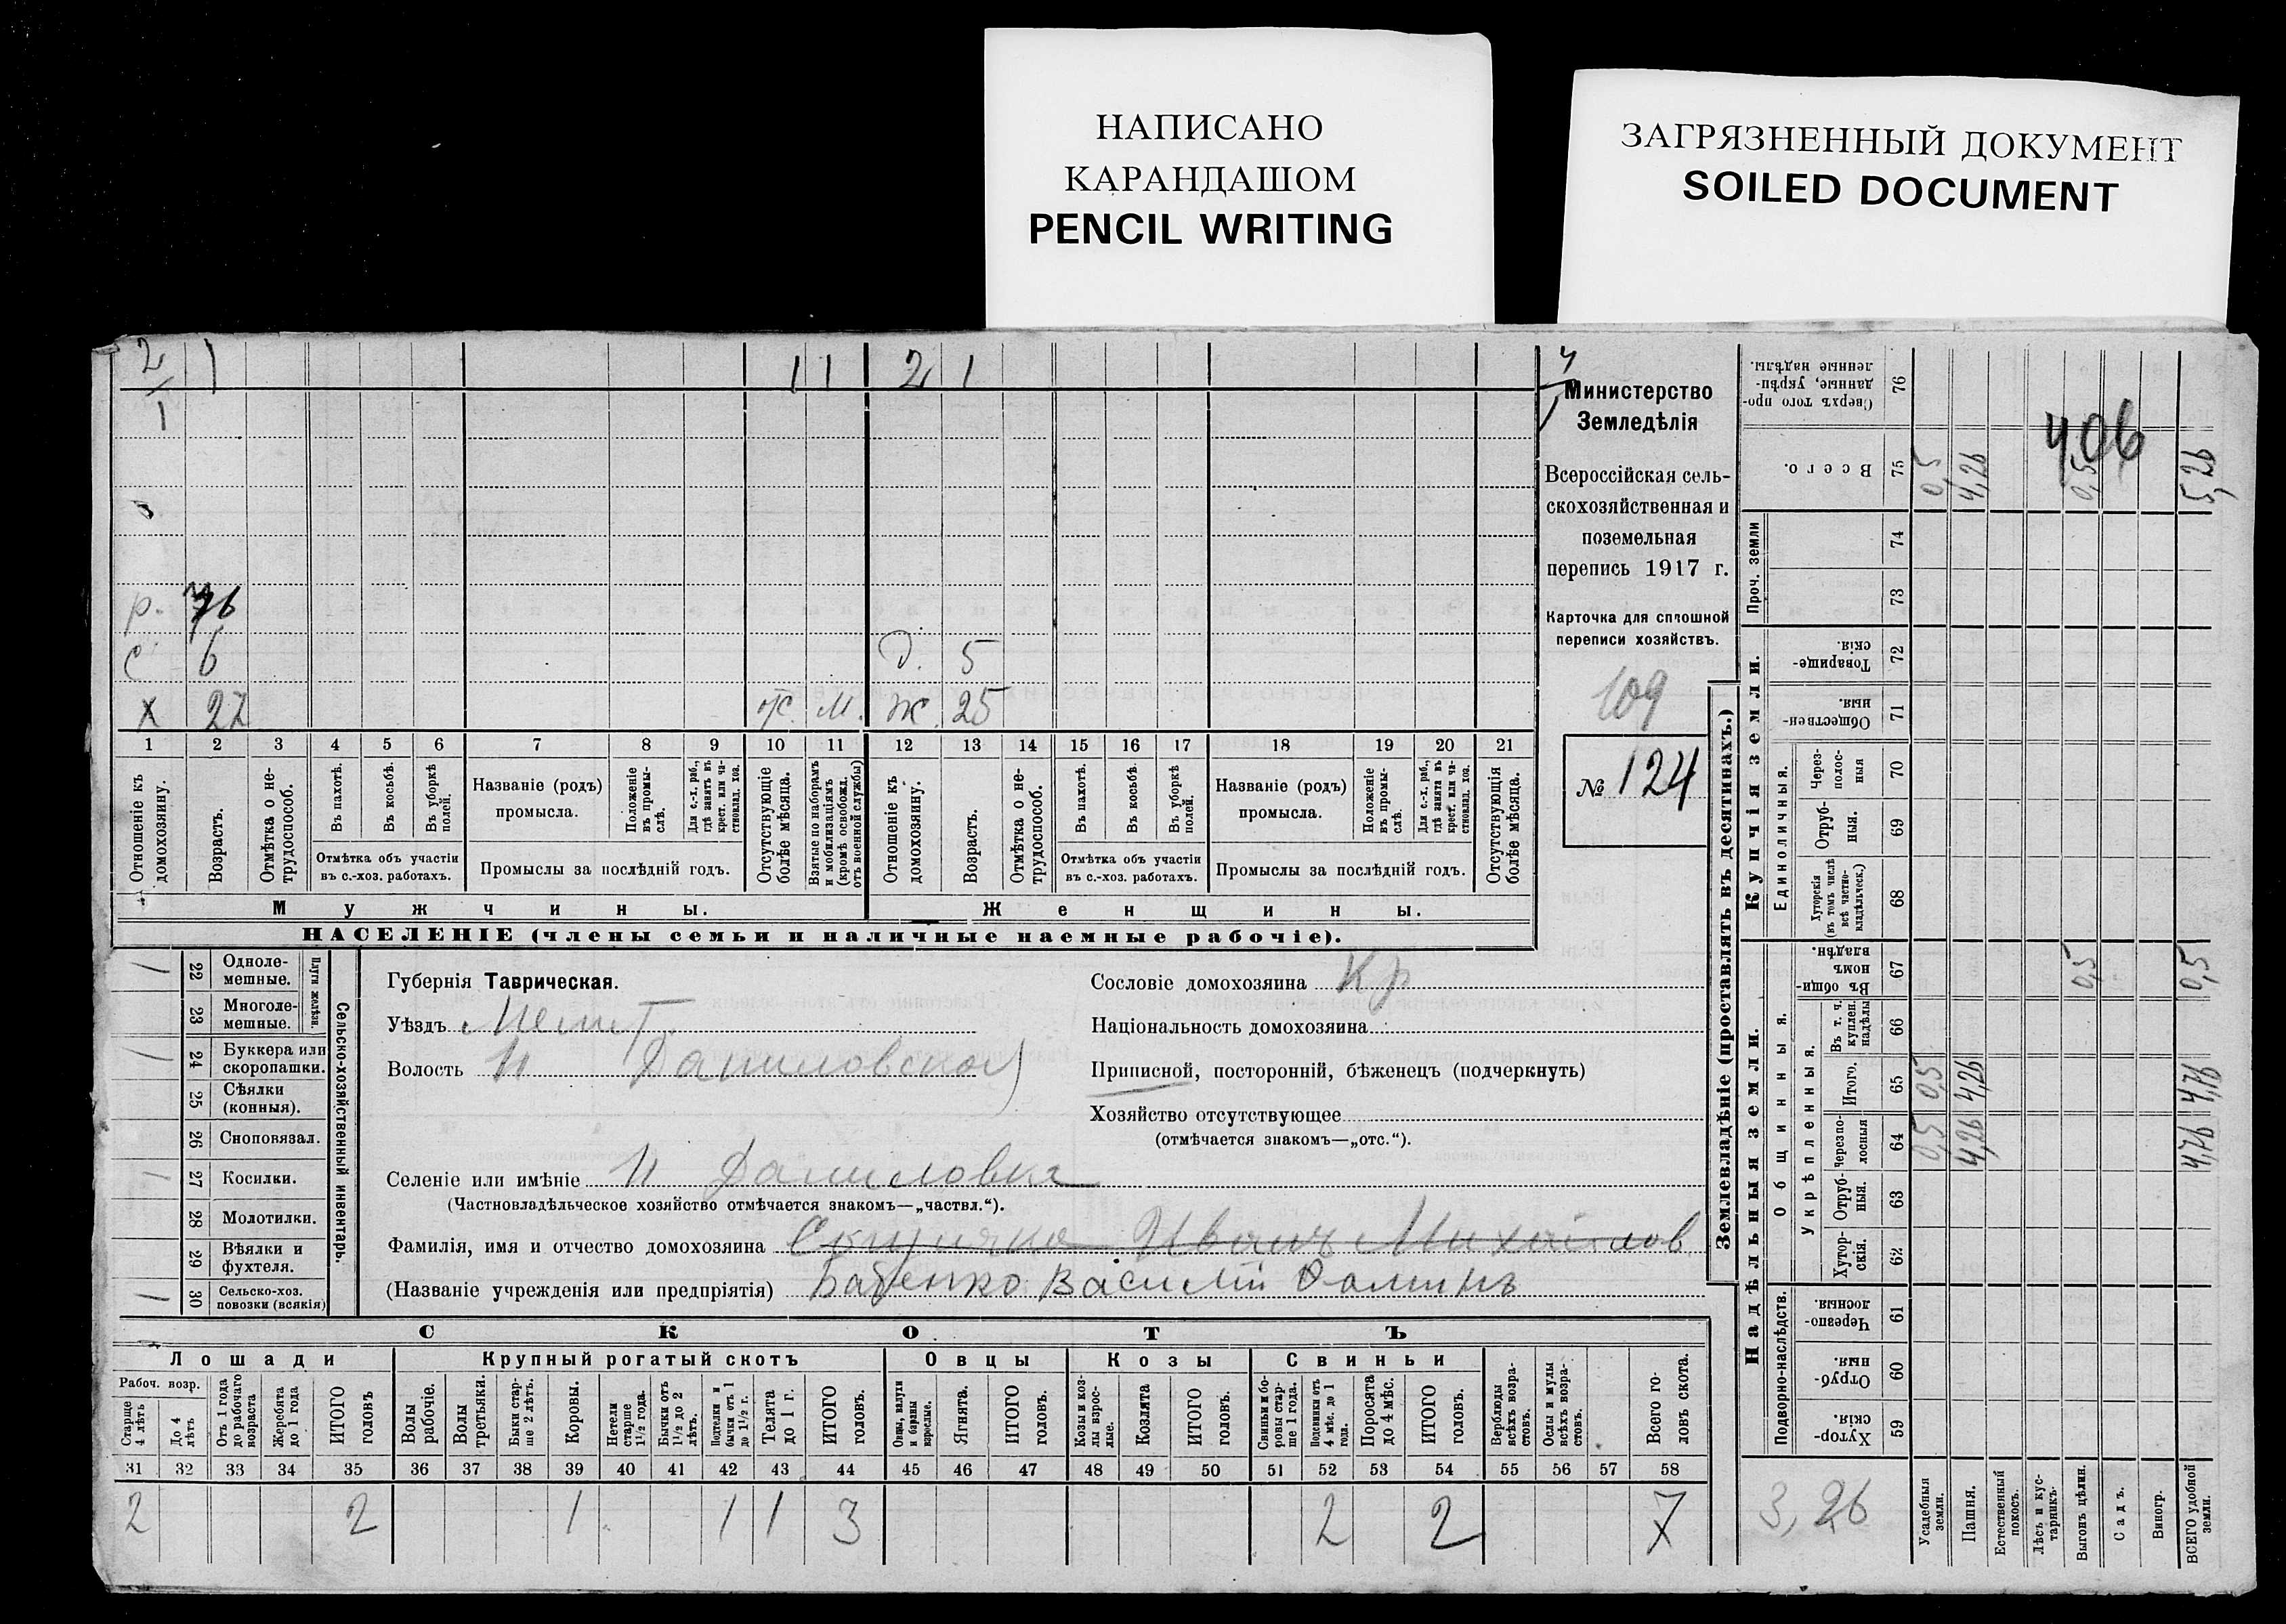 НАПИСАНО
КАРАНДАШОМ
PENCIL WRITING
ЗАГРЯЗНЕННЫЙ ДОКУМЕНТ
SOILED DOCUMENT
2 1 1 1 2 1
1
р. 76
с 6 д. 5
х 27 м. ж. 25
1 2 3 4 5 6 7 8 9 10 11 12 13 14 15 16 17 18 19 20 21
Отношеніе къ домохозяину.
Возрастъ.
Отмѣтка о нетрудоспособ.
Въ пахотѣ.
Въ косьбѣ.
Въ уборкѣ полей.
Отмѣтка объ участіи
въ с.-хоз. работахъ.
Названіе (родъ)
промысла.
Положеніе въ промыслѣ.
Для с.-х. раб., гдѣ занятъ въ крест. или частновлад. хоз.
Промыслы за послѣдній годъ.
Отсутствующіе болѣе мѣсяца.
Взятые по наборамъ и мобилизаціямъ (кромѣ освобожд. отъ военной службы)
Отношеніе къ домохозяину.
Возрастъ.
Отмѣтка о нетрудоспособ.
Въ пахотѣ.
Въ косьбѣ.
Въ уборкѣ полей.
Отмѣтка объ участіи
въ с.-хоз. работахъ.
Названіе (родъ)
промысла.
Положеніе въ промыслѣ.
Для с.-х. раб., гдѣ занята въ крест. или частновлад. хоз.
Промыслы за послѣдній годъ.
Отсутствующія болѣе мѣсяца.
Мужчины.
Женщины.
НАСЕЛЕНІЕ (члены семьи и наличные наемные рабочіе).
Министерство
Земледѣлія
Всероссійская сель-
скохозяйственная и
поземельная
перепись 1917 г.
Карточка для сплошной
переписи хозяйствъ.
109
№ 124
1 22 Однолемешные.
23 Многолемешные.
Плуги желѣзн.
1 24 Буккера или скоропашки.
25 Сѣялки (конныя).
26 Сноповязал.
1 27 Косилки.
28 Молотилки.
29 Вѣялки и фухтеля.
1 30 Сельско-хоз. повозки (всякія)
Сельско-хозяйственный инвентарь.
Губернія Таврическая.
Уѣздъ Мелит.
Волость Н Даниловская
Селеніе или имѣніе Н Даниловка
(Частновладѣльческое хозяйство отмѣчается знакомъ—„частвл.“).
Фамилія, имя и отчество домохозяина Иванъ Михайлов
(Названіе учрежденія или предпріятія) Бабенко Василій
Сословіе домохозяина Кр
Національность домохозяина
Приписной, посторонній, бѣженецъ (подчеркнуть)
Хозяйство отсутствующее
(отмѣчается знакомъ—„отс.“).
СКОТЪ
Лошади
Крупный рогатый скотъ
Овцы
Козы
Свиньи
Рабоч. возр.
Старше 4 лѣтъ
До 4 лѣтъ
Отъ 1 года до рабочаго возраста
Жеребята до 1 года
ИТОГО головъ
Волы рабочіе.
Волы третьяки.
Быки старше 2 лѣтъ.
Коровы.
Нетели старше 1½ года.
Бычки отъ 1½ до 2 лѣтъ.
Подтелки и бычки отъ 1 до 1½ г.
Телята до 1 г.
ИТОГО головъ.
Овцы, валухи и бараны взрослые.
Ягнята.
ИТОГО головъ.
Козы и козлы взрослые.
Козлята
ИТОГО головъ.
Свиньи и боровы старше 1 года.
Подсвинки отъ 4 мѣс. до 1 года.
Поросята до 4 мѣс.
ИТОГО головъ.
Верблюды всѣхъ возрастовъ.
Ослы и мулы всѣхъ возрастовъ.
Всего головъ скота.
31 32 33 34 35 36 37 38 39 40 41 42 43 44 45 46 47 48 49 50 51 52 53 54 55 56 57 58
2 2 1 1 1 3 2 2 7
Землевладѣніе (проставлять въ десятинахъ.)
Купчія земли.
Надѣльныя земли.
Сверхъ того проданные, укрѣпленные надѣлы. 76
Всего. 75 0,5 4,26 0,5 5,26
406
Проч. земли 74 73
Товарищескія. 72
Общественныя. 71
Единоличныя.
Черезполосныя 70
Отрубныя. 69
Хуторскія (въ томъ числѣ всѣ частновладѣльческ.) 68
Общинныя.
Въ общиномъ владѣн. 67 0,5 0,5
Укрѣпленныя.
Въ т. ч. куплен. надѣлы 66
Итого. 65 0,5 4,26 4,76
Черезполосныя 64 0,5 4,26 4,76
Отрубныя. 63
Хуторскія. 62
Подворно-наслѣдств.
Черезполосныя 61
Отрубныя. 60
Хуторскія. 59
3,26
Усадебныя земли.
Пашня.
Естественный покосъ.
Лѣсъ и кустарникъ.
Выгонъ цѣлин.
Садъ.
Виногр.
ВСЕГО удобной земли.